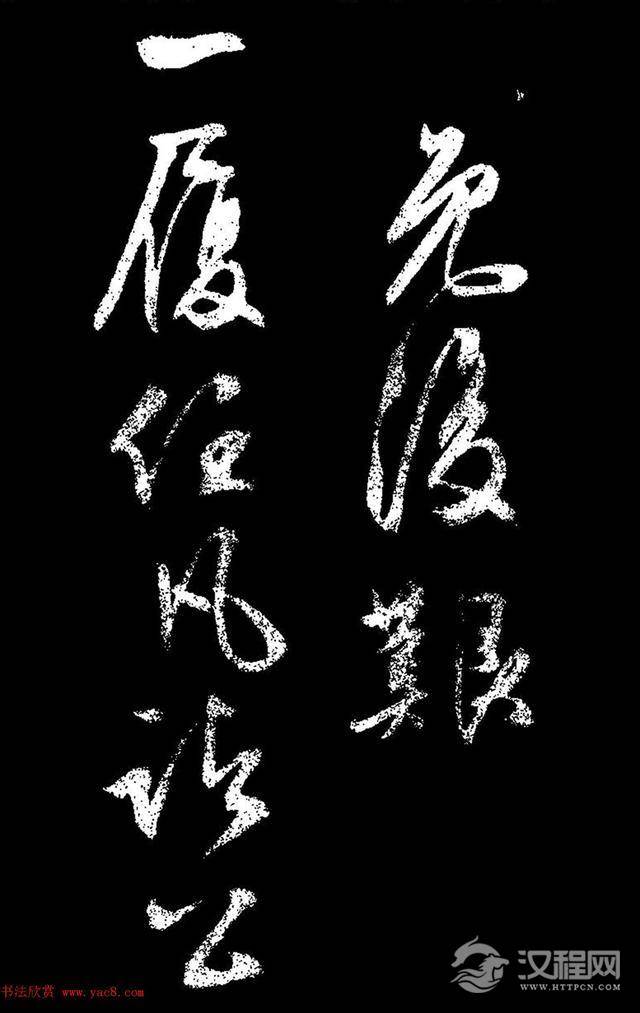 免後艱
一履任凡詣公
书法欣赏 www.yac8.com
汉程网
WWW.HTTPCN.COM